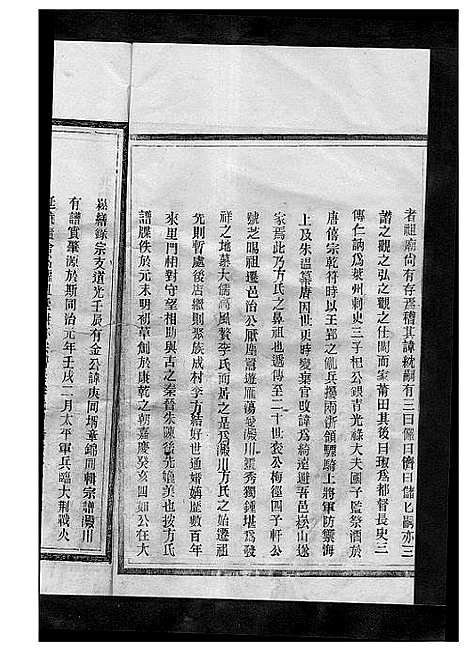 者祖廟尚有存焉稽其諱統嗣有三曰儼曰儕曰儲匕嗣亦三
譜之觀之弘之觀之仕閩而家莆田其後曰琡爲都督長史三
傳仁訥爲萊州刺史三子杞公銀青光祿大夫國子監祭酒於
唐僖宗乾符時以王郢之亂兵擾兩浙領驃騎上將軍防禦海
上及朱溫纂唐因世更時變棄官改諱爲綺遠避吾邑崧山遂
家焉此乃方氏之鼻祖也遞傳至二十世裘公梅徑四子軒公
號芝暘祖遷邑治公厭塵囂遊雁蕩愛澱川獨秀獨鍾堪爲發
祥之地慕大儒高風贅李氏而居之是爲澱川方氏之始遷祖
先則暫處後店繼則聚族成村李方結好世通婚媾歷數百年
來里門相對守望相助與古之秦晉朱陳後先媲美也按方氏
譜牒佚於元末明初草創於康乾之朝嘉慶癸亥四如公在大
崧繕錄宗支道光壬辰有金公諱庚同壻章錦周輯宗譜澱川
有譜實肇源於斯同治元年壬戌二月太平軍兵臨大荆戰火